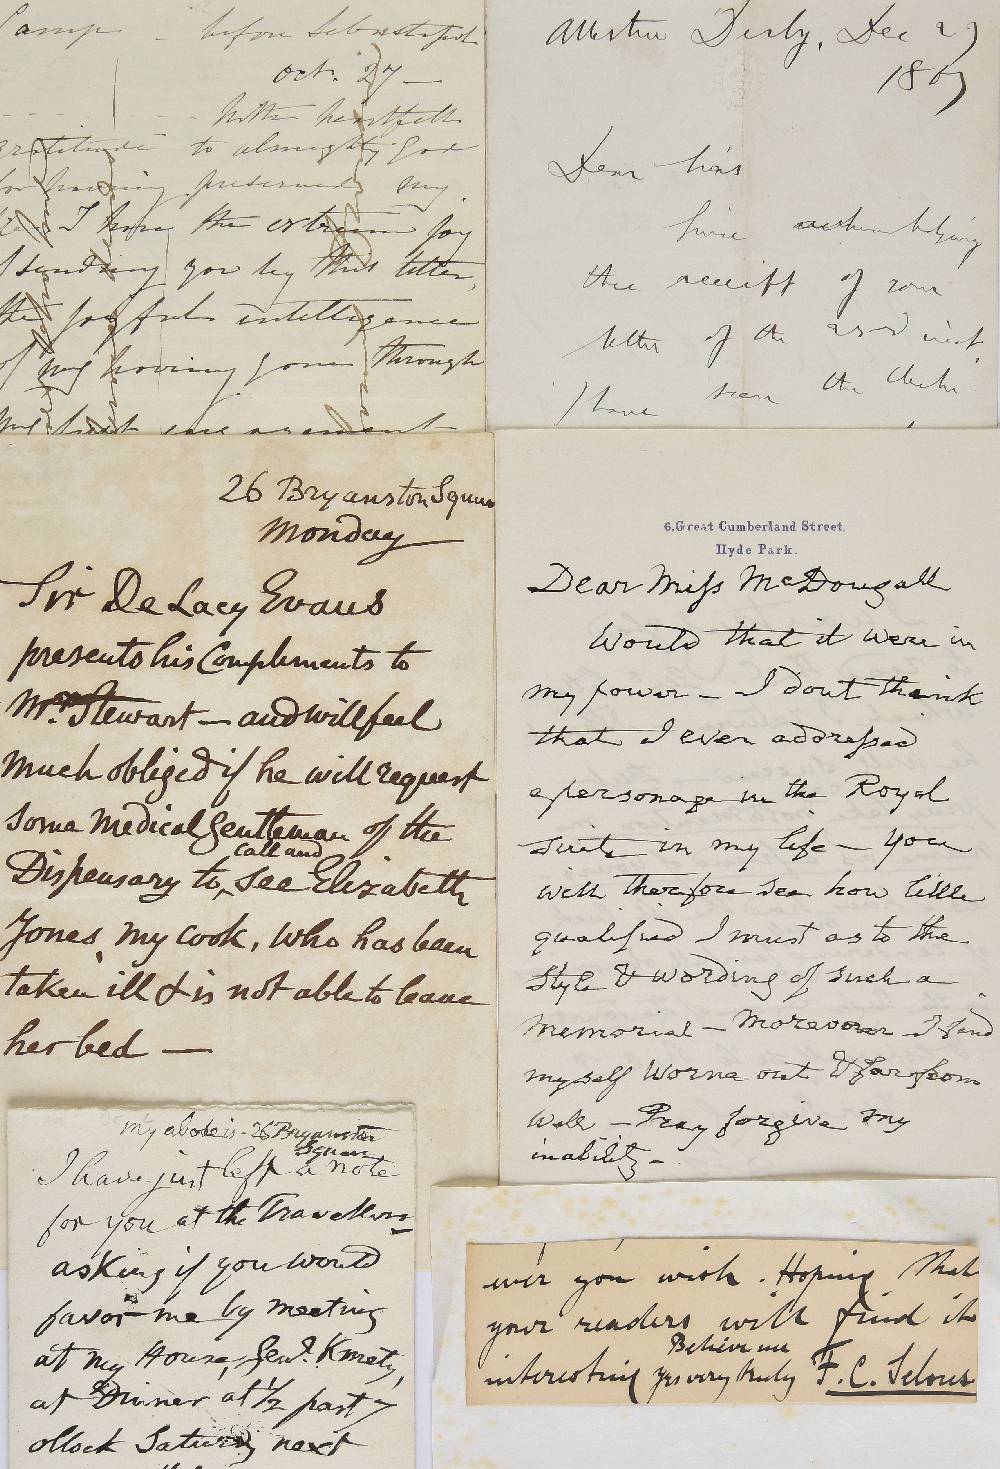 Camp - before Sebastopol
Oct. 27 -
With heartfelt
gratitude to almighty God
for having preserved my
life I have the extreme joy
of sending you by this letter,
the joyful intelligence
of my having gone through
my first engagement
Derby, Dec 27
1867
Dear Sirs
Since acknowledging
the receipt of your
letter of the 23rd inst.
I have seen the
26 Bryanston Square
Monday
Sir De Lacy Evans
presents his Compliments to
Mr. Stewart - and will feel
much obliged if he will request
some Medical Gentleman of the
call and
Dispensary to, see Elizabeth
Jones, my cook, who has been
taken ill & is not able to leave
her bed -
6, Great Cumberland Street,
Hyde Park.
Dear Miss McDougall
Would that it were in
my power - I dont think
that I ever addressed
a personage in the Royal
in my life - you
will therefore see how little
qualified I must as to the
style & wording of such a
memorial - Moreover I find
myself worne out & far from
well - Pray forgive my
inability -
My abode is - 26 Bryanston
Square
I have just left a note
for you at the Travellers
asking if you would
favor me by meeting
at my House, Genl. Kmety,
at Dinner at 1/2 past 7
oClock Saturday next
ever you wish. Hoping that
your readers will find it
Believe me
interesting yrs very truly F. C. Selous